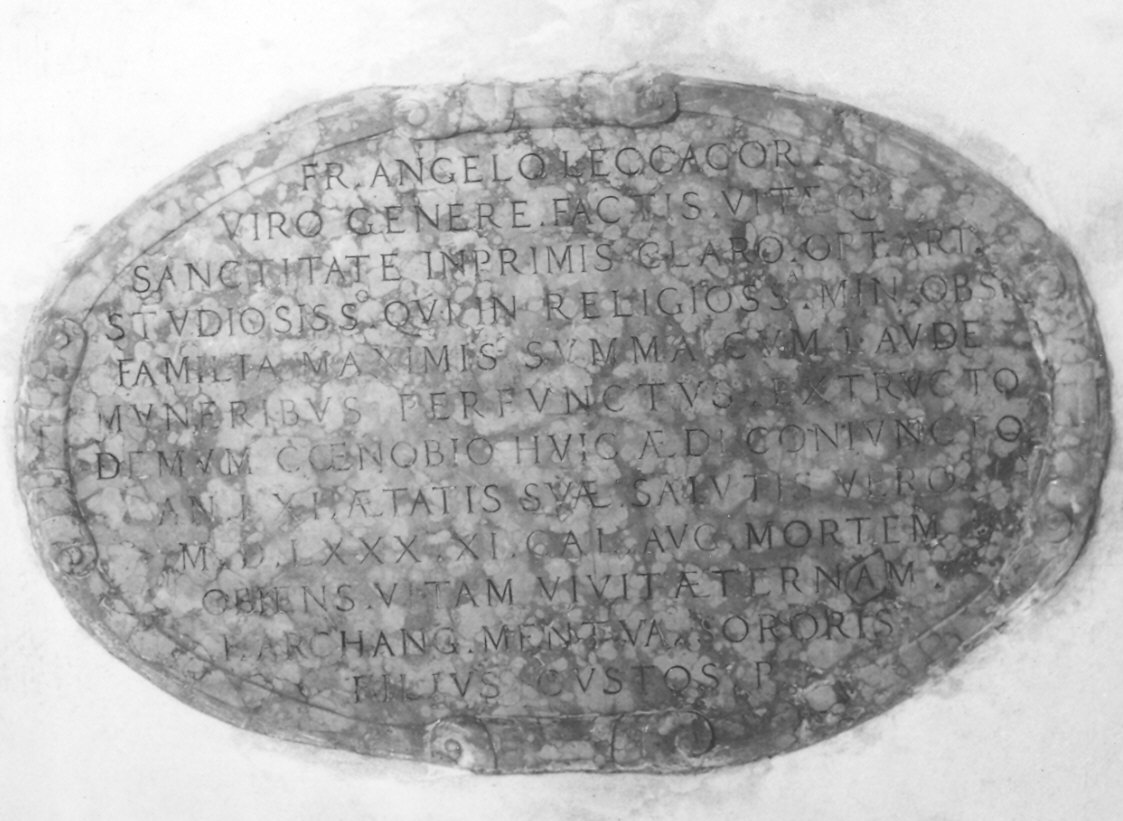 FR. ANGELO LECCACOR.
VIRO GENERE. FACTIS. VITÆQ.
SANCTITATE INPRIMIS CLARO. OPT. ART.
STVDIOSISSº. QVI. IN RELIGIOSS. MIN. OBS.
FAMILIA MAXIMIS SVMMA CVM LAVDE
MVNERIBVS PERFVNCTVS. EXTRVCTO
DEMVM CŒNOBIO HVIC ÆDI CONIVNCTO
AN. LXI. ÆTATIS SVÆ. SALVTIS VERO
M. D. LXXX. XI. CAL. AVG. MORTEM
OBIENS. VITAM VIVIT ÆTERNAM.
F. ARCHANG. MENTVA. SORORIS
FILIVS CVSTOS P.